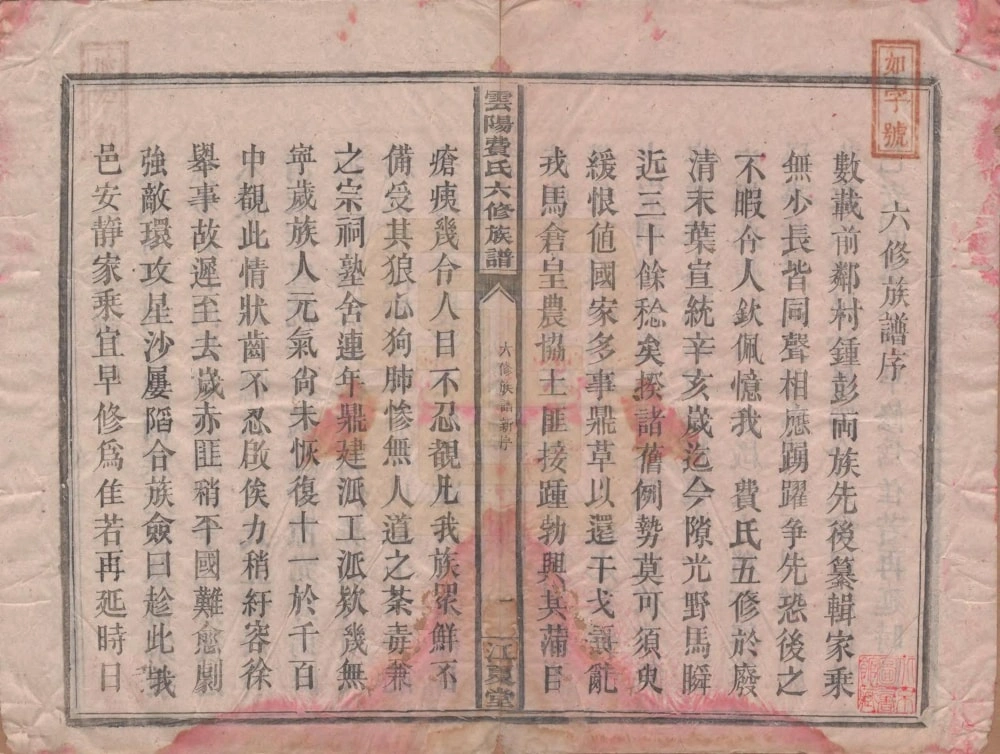 如字號
六修族譜序
數載前鄰村鍾彭兩族先後纂輯家乘
無少長皆同聲相應踴躍争先恐後之
不暇令人欽佩憶我 費氏五修於廢
清末葉宣統辛亥歲迄今隙光野馬瞬
近三十餘稔矣揆諸舊例勢莫可須臾
緩恨值國家多事鼎革以還干戈讓亂
戎馬倉皇農協土匪接踵勃興其蒲目
雲陽費氏六修族譜
六修族譜新序
一
江夏堂
瘡痍幾令人目不忍覩凡我族眾鮮不
備受其狼心狗肺慘無人道之荼毒兼
之宗祠塾舍連年鼎建派工派欵幾無
寧歲族人元氣尙未恢復十一於千百
中覩此情狀齒不忍啟俟力稍紓容徐
舉事故遲至去歲赤匪稍平國難愈劇
強敵環攻星沙屢陷合族僉曰趁此我
邑安靜家乘宜早修爲佳若再延時日